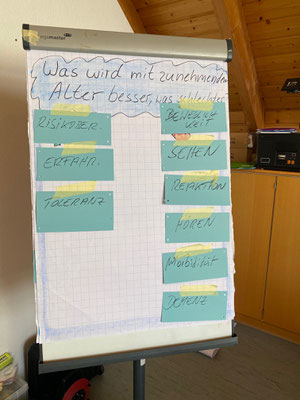 Was wird mit zunehmendem
Alter besser, was schlechter
RISIKOBER.
ERFAHR.
TOLERANZ
BEWEGLICH
KEIT
SEHEN
REAKTION
HÖREN
MORBIDITÄT
DEMENZ